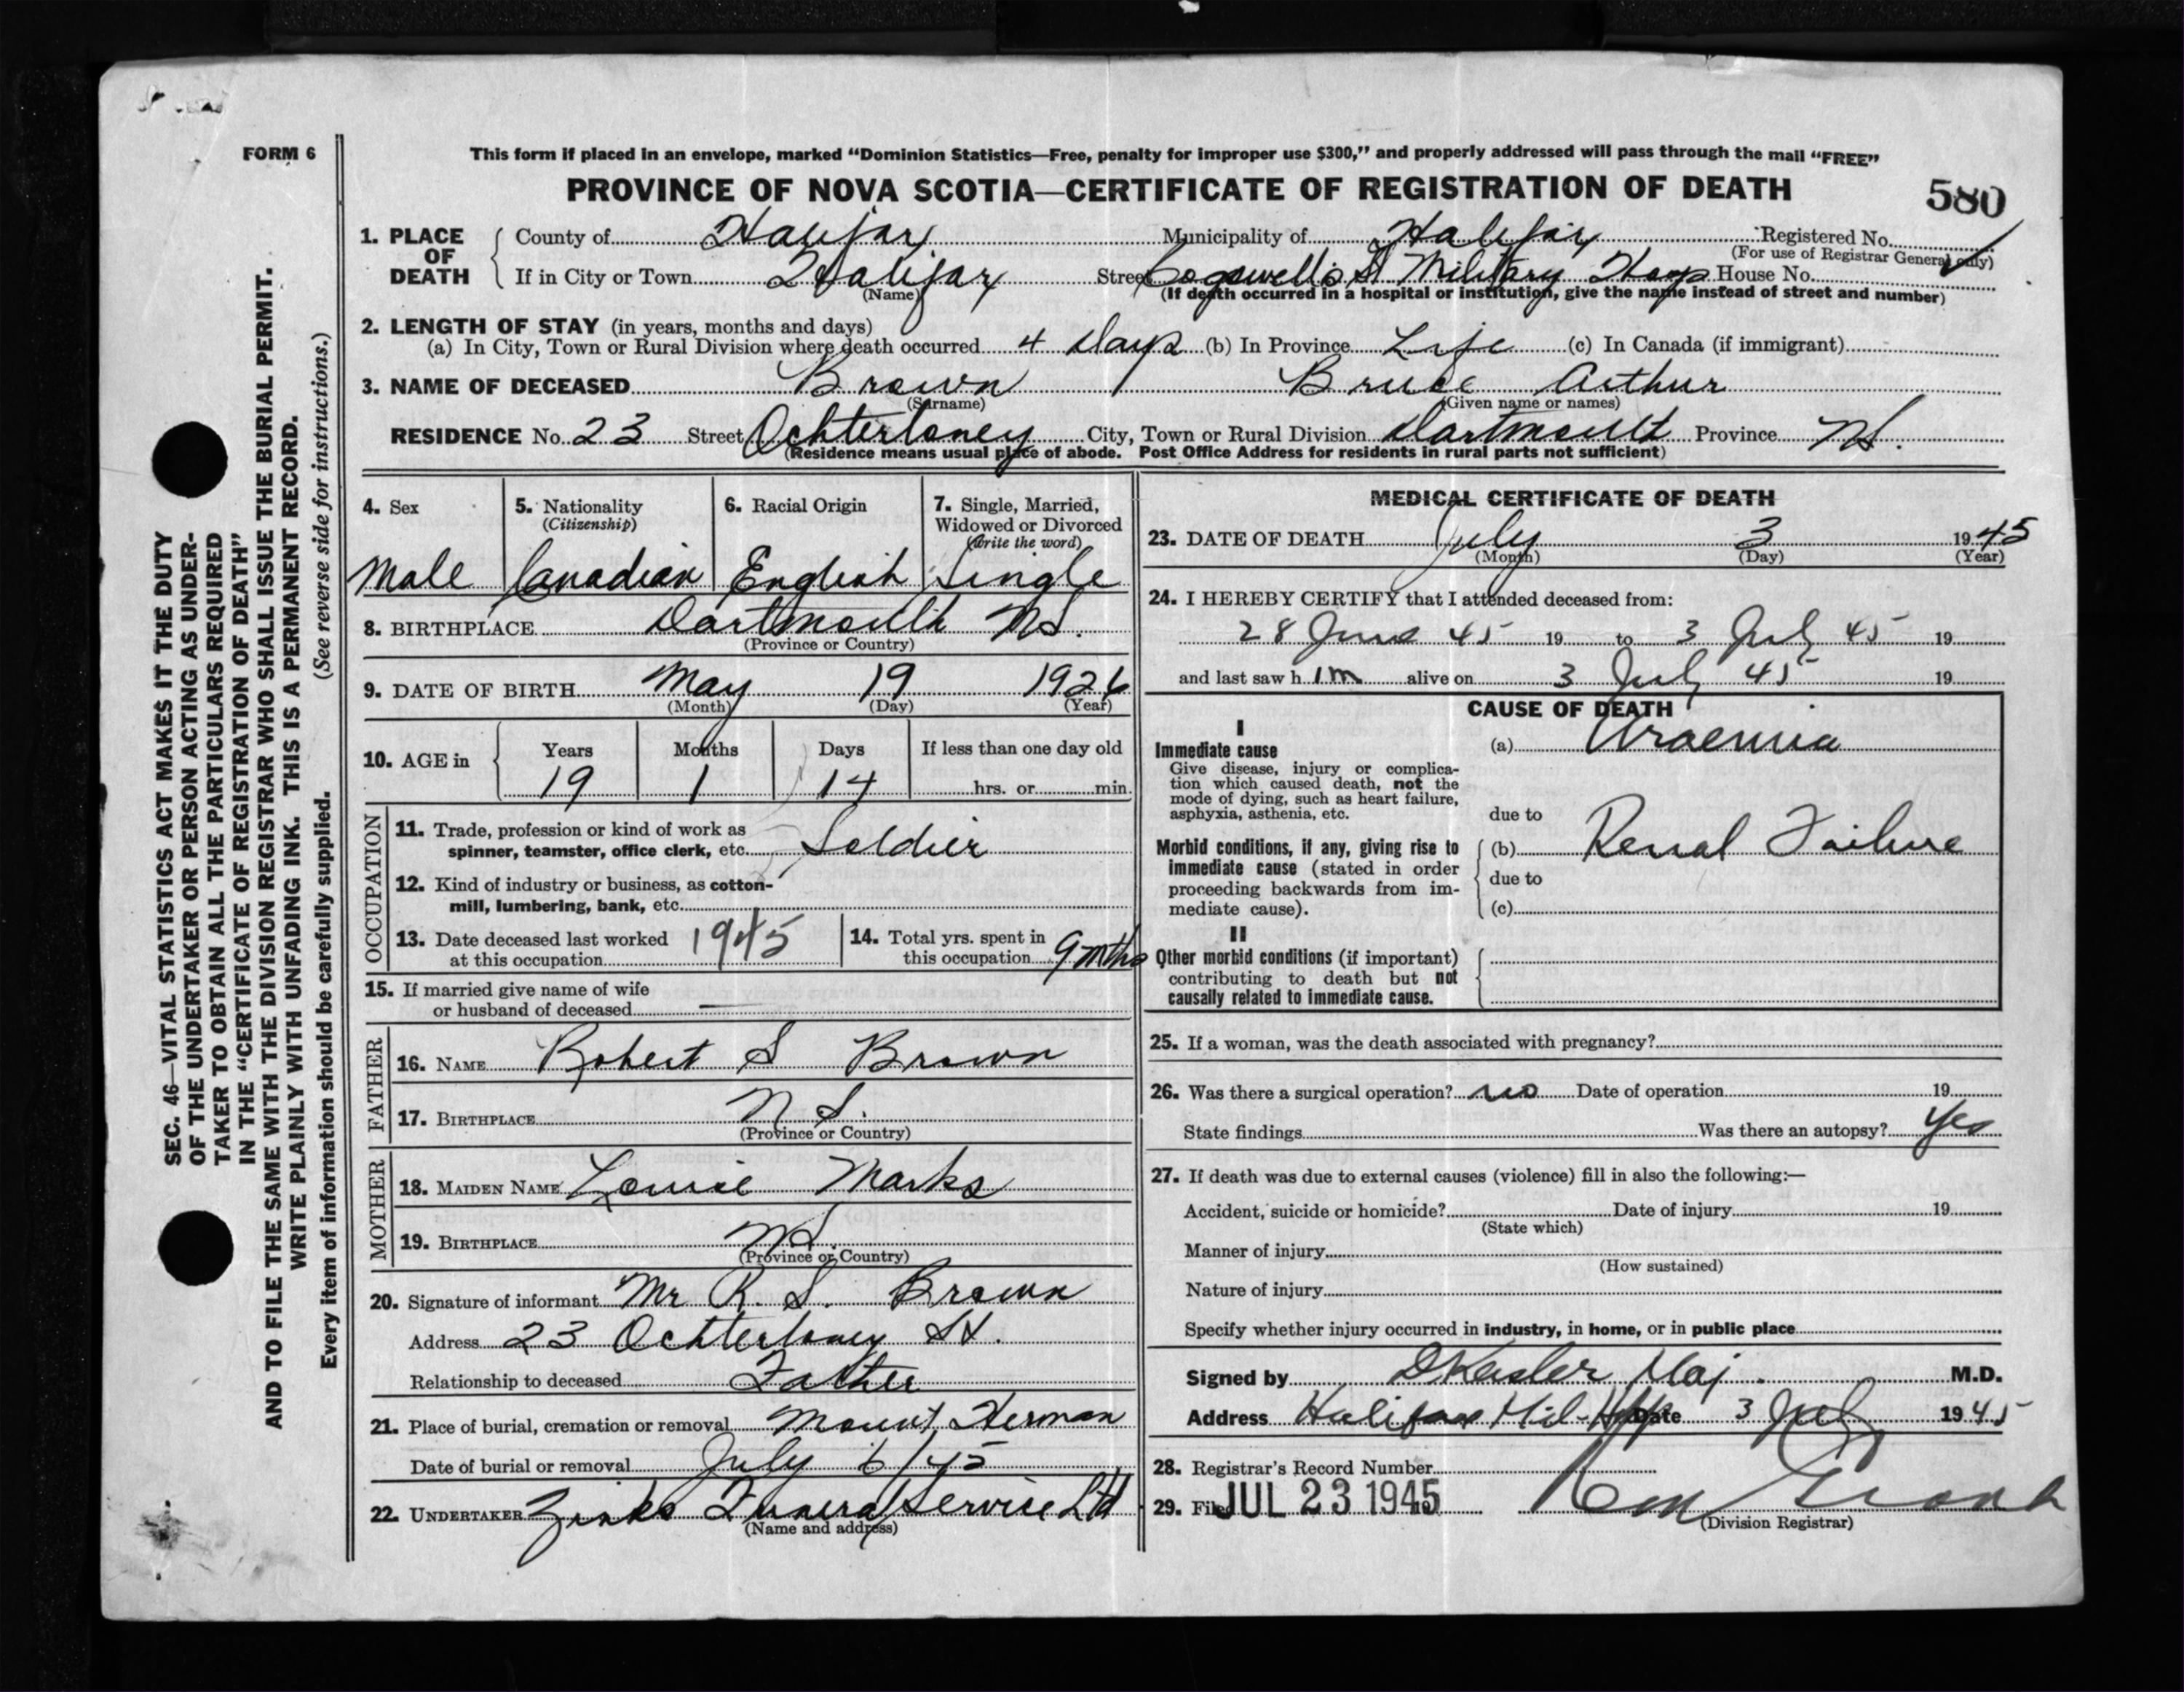 FORM 6
This form if placed in an envelope, marked “Dominion Statistics—Free, penalty for improper use $300,” and properly addressed will pass through the mail “FREE”
PROVINCE OF NOVA SCOTIA—CERTIFICATE OF REGISTRATION OF DEATH
580
1. PLACE OF DEATH
County of Halifax Municipality of Halifax Registered No.
(For use of Registrar General only)
If in City or Town Halifax Street Cogswell's St Military Hosp House No.
(Name) (If death occurred in a hospital or institution, give the name instead of street and number)
2. LENGTH OF STAY (in years, months and days)
(a) In City, Town or Rural Division where death occurred 4 days (b) In Province Life (c) In Canada (if immigrant)
3. NAME OF DECEASED Brown Bruce Arthur
(Surname) (Given name or names)
RESIDENCE No. 23 Street Ochterloney City, Town or Rural Division Dartmouth Province NS.
(Residence means usual place of abode. Post Office Address for residents in rural parts not sufficient)
4. Sex 5. Nationality (Citizenship) 6. Racial Origin 7. Single, Married, Widowed or Divorced (Write the word)
Male Canadian English Single
8. BIRTHPLACE Dartmouth NS.
(Province or Country)
9. DATE OF BIRTH May 19 1926
(Month) (Day) (Year)
10. AGE in Years Months Days If less than one day old
19 1 14 hrs. or min.
OCCUPATION
11. Trade, profession or kind of work as
spinner, teamster, office clerk, etc. Soldier
12. Kind of industry or business, as cotton-
mill, lumbering, bank, etc.
13. Date deceased last worked at this occupation 1945
14. Total yrs. spent in this occupation 9 mths
15. If married give name of wife
or husband of deceased —
FATHER
16. NAME Robert S Brown
17. BIRTHPLACE N S.
(Province or Country)
MOTHER
18. MAIDEN NAME Louise Marks
19. BIRTHPLACE NS.
(Province or Country)
20. Signature of informant Mr R. S. Brown
Address 23 Ochterloney St.
Relationship to deceased Father
21. Place of burial, cremation or removal Mount Herman
Date of burial or removal July 6/45
22. UNDERTAKER Zinks Funeral Service Ltd
(Name and address)
MEDICAL CERTIFICATE OF DEATH
23. DATE OF DEATH July 3 1945
(Month) (Day) (Year)
24. I HEREBY CERTIFY that I attended deceased from:
28 June 45 19 to 3 July 45 19
and last saw him alive on 3 July 45 19
CAUSE OF DEATH
I
Immediate cause (a) Uraemia
Give disease, injury or complica-
tion which caused death, not the
mode of dying, such as heart failure,
asphyxia, asthenia, etc.
due to
Morbid conditions, if any, giving rise to (b) Renal Failure
immediate cause (stated in order
proceeding backwards from im-
mediate cause).
due to
(c)
II
Other morbid conditions (if important)
contributing to death but not
causally related to immediate cause.
25. If a woman, was the death associated with pregnancy?
26. Was there a surgical operation? no Date of operation 19
State findings Was there an autopsy? Yes
27. If death was due to external causes (violence) fill in also the following:—
Accident, suicide or homicide? Date of injury 19
(State which)
Manner of injury
(How sustained)
Nature of injury
Specify whether injury occurred in industry, in home, or in public place
Signed by Maj. M.D.
Address Halifax Mil-Hosp Date 3 July 1945
28. Registrar's Record Number
29. Filed JUL 23 1945 19
(Division Registrar)
SEC. 46—VITAL STATISTICS ACT MAKES IT THE DUTY
OF THE UNDERTAKER OR PERSON ACTING AS UNDER-
TAKER TO OBTAIN ALL THE PARTICULARS REQUIRED
IN THE “CERTIFICATE OF REGISTRATION OF DEATH”
AND TO FILE THE SAME WITH THE DIVISION REGISTRAR WHO SHALL ISSUE THE BURIAL PERMIT.
WRITE PLAINLY WITH UNFADING INK. THIS IS A PERMANENT RECORD.
Every item of information should be carefully supplied. (See reverse side for instructions.)